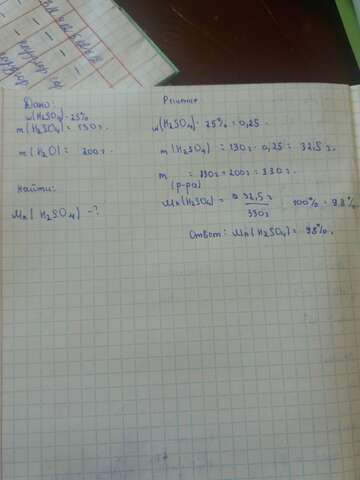 Дано:
w(H₂SO₄) = 25%
m(H₂SO₄) = 130г.
m(H₂O) = 200г.
Найти:
(H₂SO₄) -?
Решение
w(H₂SO₄) = 25% = 0,25.
m(H₂SO₄) = 130г · 0,25 = 32,5г.
m = 130г + 200г = 330г.
(р-ра)
(H₂SO₄) = 32,5г / 330г · 100% = 9,8%.
Ответ: (H₂SO₄) = 9,8%.